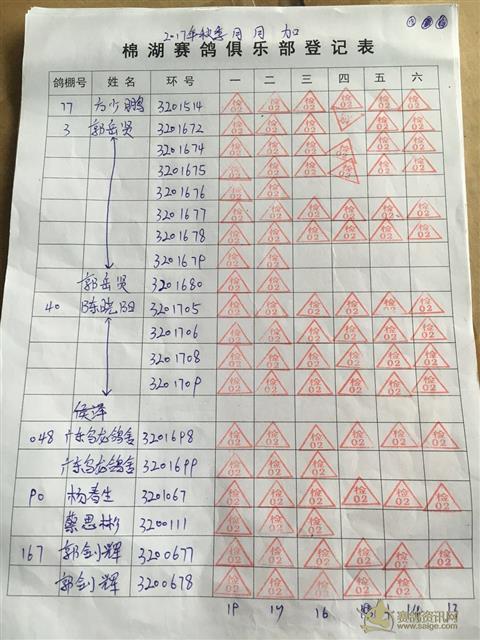 2017年秋季月月加
棉湖赛鸽俱乐部登记表
鸽棚号 姓名 环号 一 二 三 四 五 六
77 方少鹏 3201514 检02 检02 检02 检02 检02 检02
3 郭岳贤 3201672 检02 检02 检02 检 检02 检02
3201674 检02 检02 检02 检02 检02 检02
3201675 检02 检02 检02 检02 检02 检02
3201676 检02 检02
3201677 检02 检02 检02 检02 检02 检02
3201678 检02 检02 检02 检02 检02 检02
3201679 检02 检02
郭岳贤 3201680 检02 检02
40 陈晓阳 3201705 检02 检02 检02 检02 检02 检02
3201706 检02 检02 检02 检02 检02 检02
3201708 检02 检02 检02 检02 检02 检02
3201709 检02 检02 检02 检02 检02 检02
侯萍
048 广东乌龙鸽舍 3201698 检02 检02 检02 检02 检02 检02
广东乌龙鸽舍 3201699 检02 检02 检02
90 杨春生 3201067 检02 检02 检02 检02 检02 检02
蔡思彬 3200111 检02 检02 检02
167 郭剑辉 3200677 检02 检02 检02 检02 检02 检02
郭剑辉 3200678 检02 检02 检02 检02 检02 检02
19 17 16 14 13
赛鸽资讯网
www.saige.com